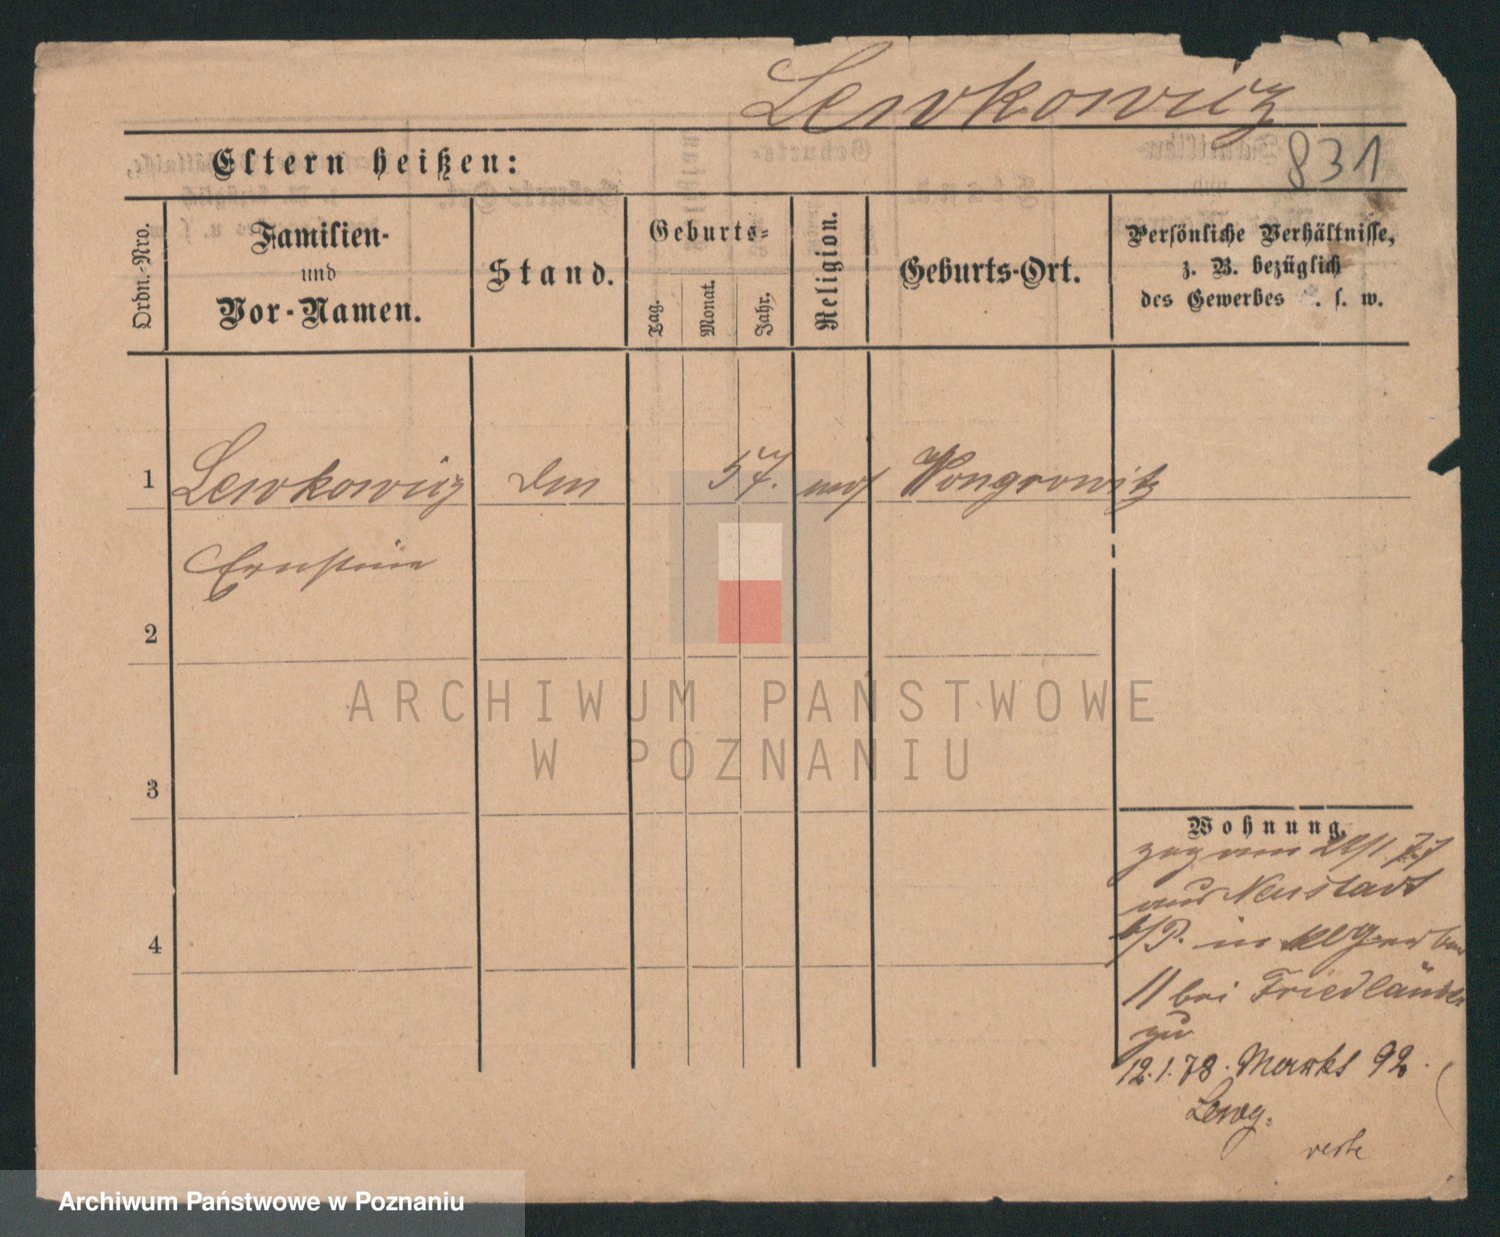 Lewkowicz
831
Eltern heißen:
Ordn.-Nro.
Familien-
und
Vor-Namen.
Stand.
Geburts-
Tag.
Monat.
Jahr.
Religion.
Geburts-Ort.
Persönliche Verhältnisse,
z. B. bezüglich
des Gewerbes u. s. w.
1
Lewkowicz
57.
mos
Wongrowitz
Ernstine
2
3
4
ARCHIWUM PAŃSTWOWE
W POZNANIU
Wohnung.
zog am 77
aus Neustadt
b/P. in
11 bei Friedländer
zu
12.1.78. Markt 92.
Archiwum Państwowe w Poznaniu